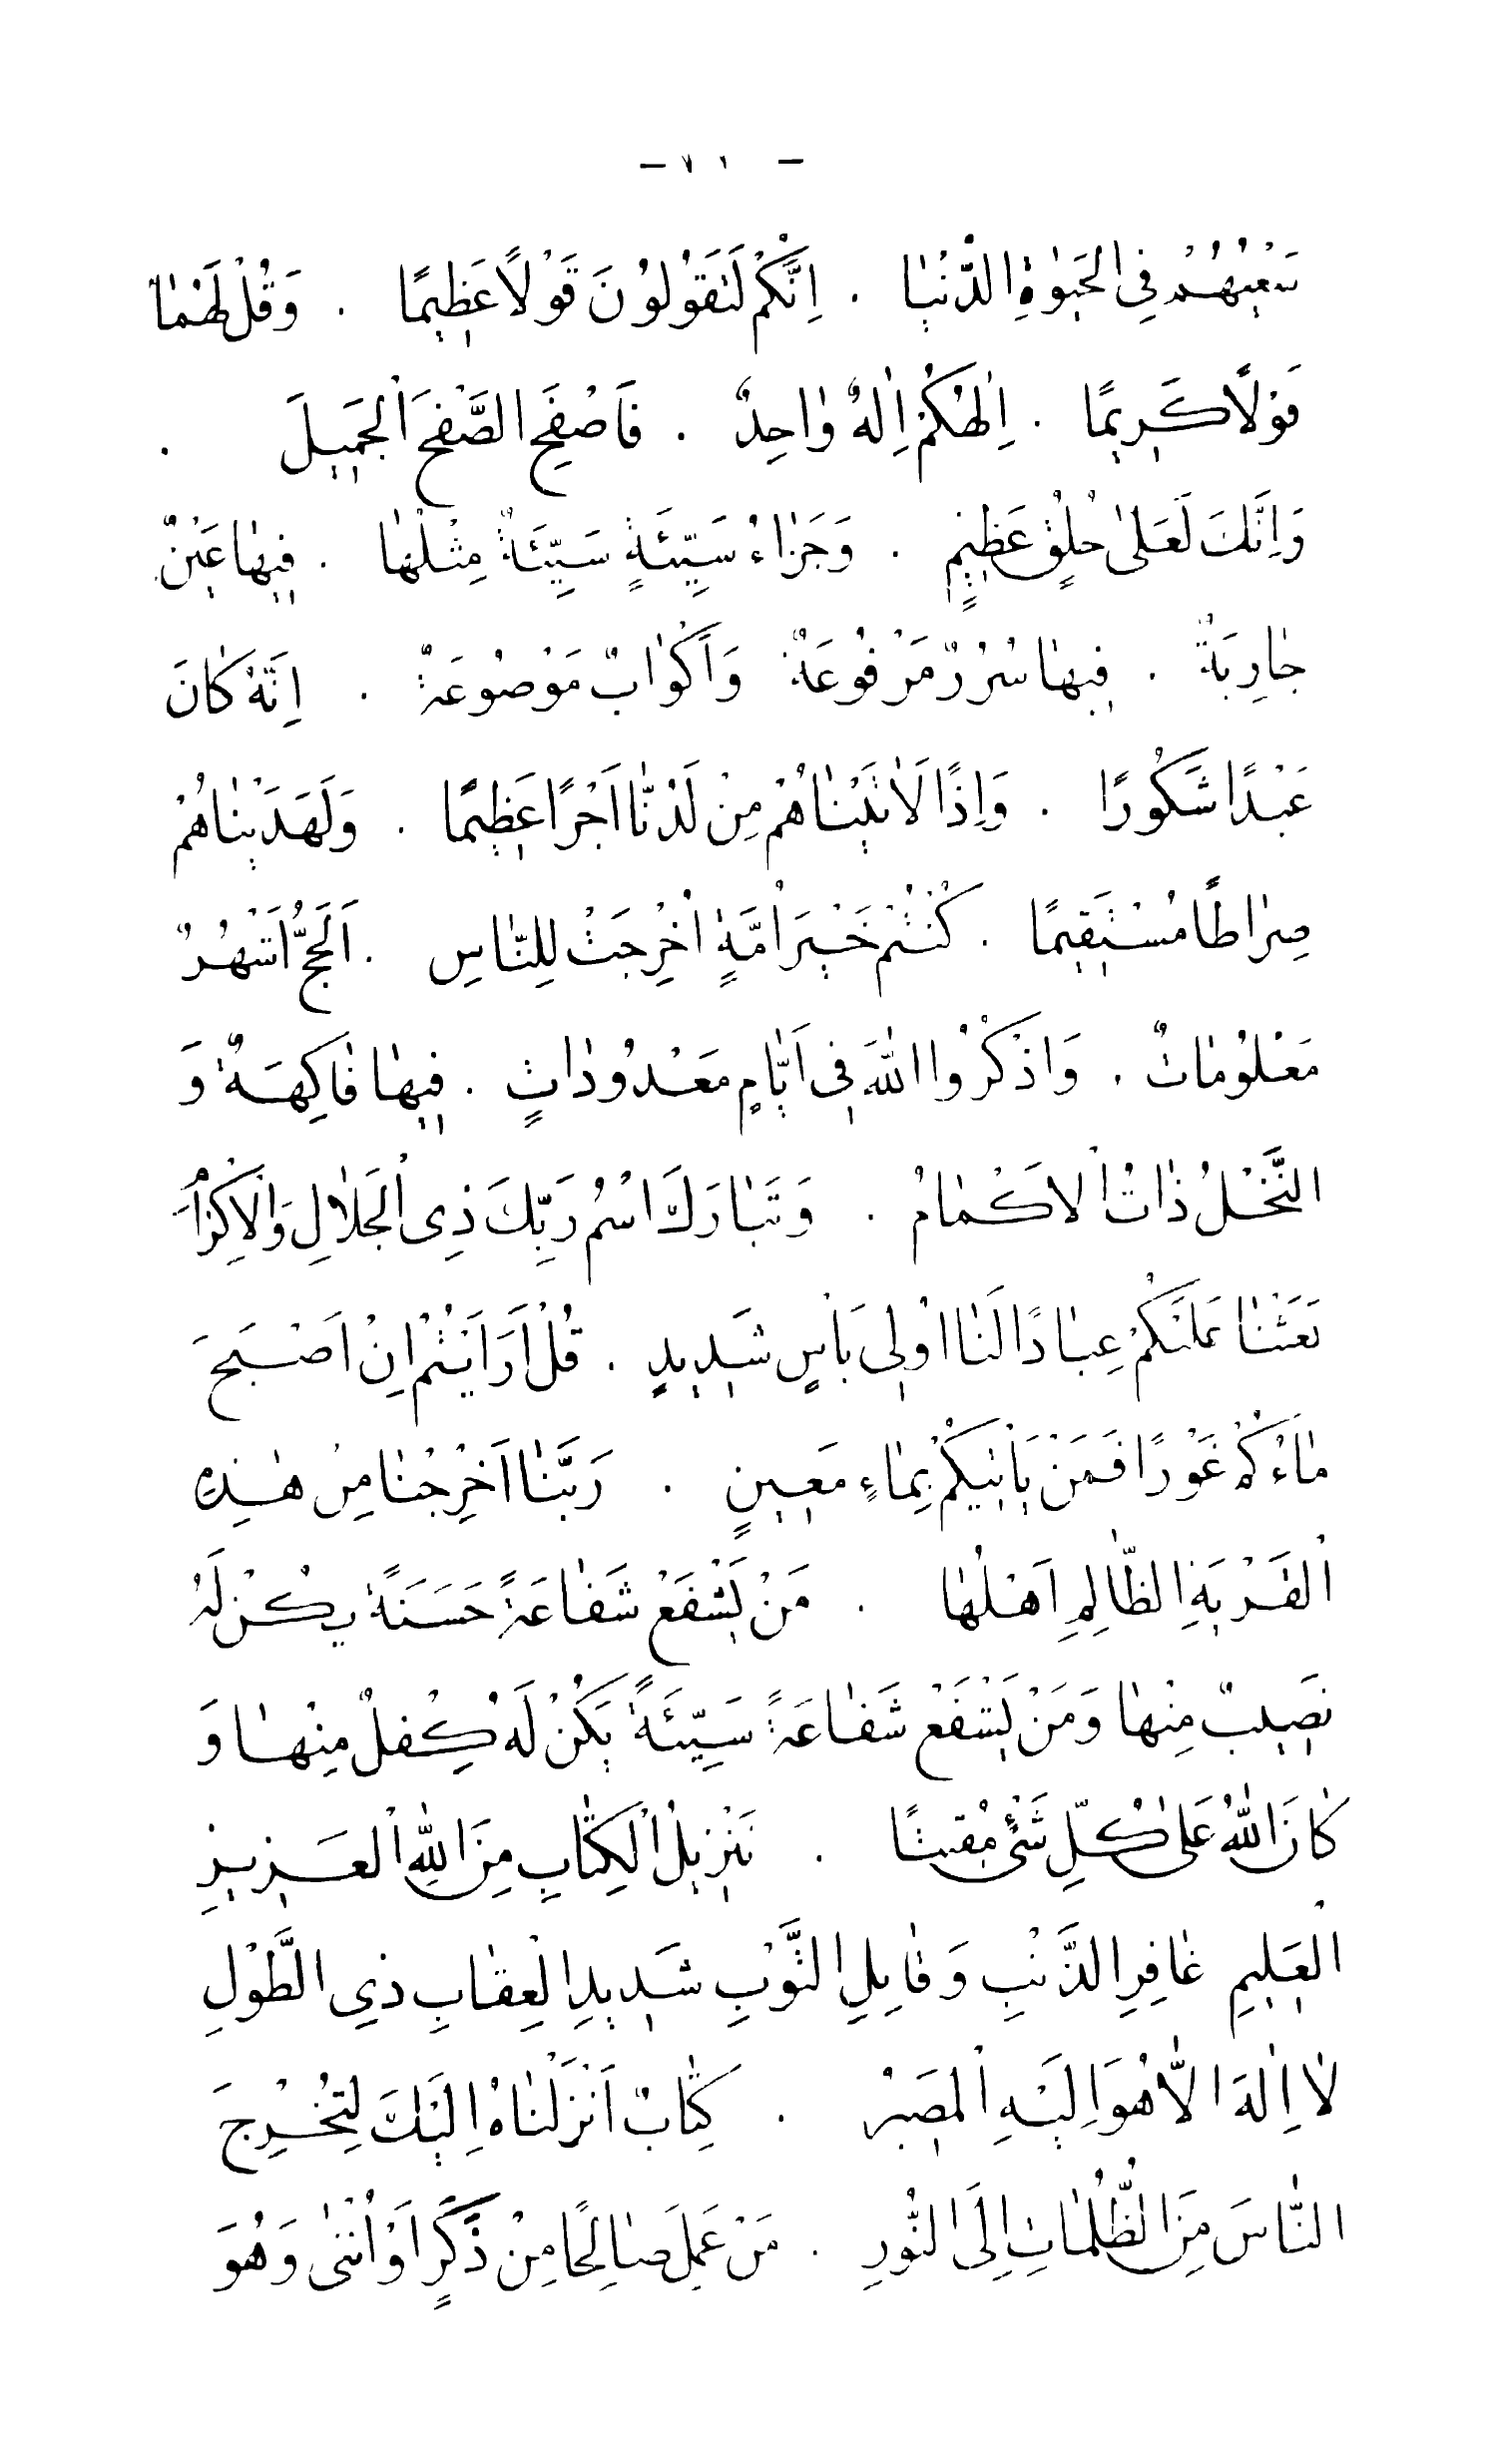 - ٧١ -
سَعْيُهُمْ فِي الْحَيٰوةِ الدُّنْيٰا . اِنَّكُمْ لَتَقُولُونَ قَوْلًا عَظِيمًا . وَقُلْ لَهُمٰا
قَوْلًا كَرِيمًا . اِلٰهُكُمْ اِلٰهٌ وٰاحِدٌ . فَاصْفَحِ الصَّفْحَ الْجَمِيلَ .
وَاِنَّكَ لَعَلىٰ خُلُقٍ عَظِيمٍ . وَجَزٰاءُ سَيِّئَةٍ سَيِّئَةٌ مِثْلُهٰا . فِيهٰا عَيْنٌ
جٰارِيَةٌ . فِيهٰا سُرُرٌ مَرْفُوعَةٌ وَاَكْوٰابٌ مَوْضُوعَةٌ . اِنَّهُ كٰانَ
عَبْدًا شَكُورًا . وَاِذًا لَاٰتَيْنٰاهُمْ مِنْ لَدُنّٰا اَجْرًا عَظِيمًا . وَلَهَدَيْنٰاهُمْ
صِرٰاطًا مُسْتَقِيمًا . كُنْتُمْ خَيْرَ اُمَّةٍ اُخْرِجَتْ لِلنّٰاسِ . اَلْحَجُّ اَشْهُرٌ
مَعْلُومٰاتٌ . وَاذْكُرُوا اللّٰهَ فِي اَيّٰامٍ مَعْدُودٰاتٍ . فِيهٰا فٰاكِهَةٌ وَ
النَّخْلُ ذٰاتُ الْاَكْمٰامُ . وَتَبٰارَكَ اسْمُ رَبِّكَ ذِي الْجَلٰالِ وَالْاِكْرٰا
بَعَثْنٰا عَلَيْكُمْ عِبٰادًا لَنٰا اُولِي بَأْسٍ شَدِيدٍ . قُلْ اَرَاَيْتُمْ اِنْ اَصْبَحَ
مٰاءُكُمْ غَوْرًا فَمَنْ يَأْتِيكُمْ بِمٰاءٍ مَعِينٍ . رَبَّنٰا اَخْرِجْنٰا مِنْ هٰذِهِ
الْقَرْيَةِ الظّٰالِمِ اَهْلُهٰا . مَنْ يَشْفَعْ شَفٰاعَةً حَسَنَةً يَكُنْ لَهُ
نَصِيبٌ مِنْهٰا وَمَنْ يَشْفَعْ شَفٰاعَةً سَيِّئَةً يَكُنْ لَهُ كِفْلٌ مِنْهٰا وَ
كٰانَ اللّٰهُ عَلىٰ كُلِّ شَئْءٍ مُقِيتًا . تَنْزِيلُ الْكِتٰابِ مِنَ اللّٰهِ الْعَزِيزِ
الْعَلِيمِ غٰافِرِ الذَّنْبِ وَقٰابِلِ التَّوْبِ شَدِيدِ الْعِقٰابِ ذِي الطَّوْلِ
لٰا اِلٰهَ اِلّٰا هُوَ اِلَيْهِ الْمَصِيْرُ . كِتٰابٌ اَنْزَلْنٰاهُ اِلَيْكَ لِتُخْرِجَ
النّٰاسَ مِنَ الظُّلُمٰاتِ اِلَى النُّورِ . مَنْ عَمِلَ صٰالِحًا مِنْ ذَكَرٍ اَوْ اُنْثىٰ وَهُوَ